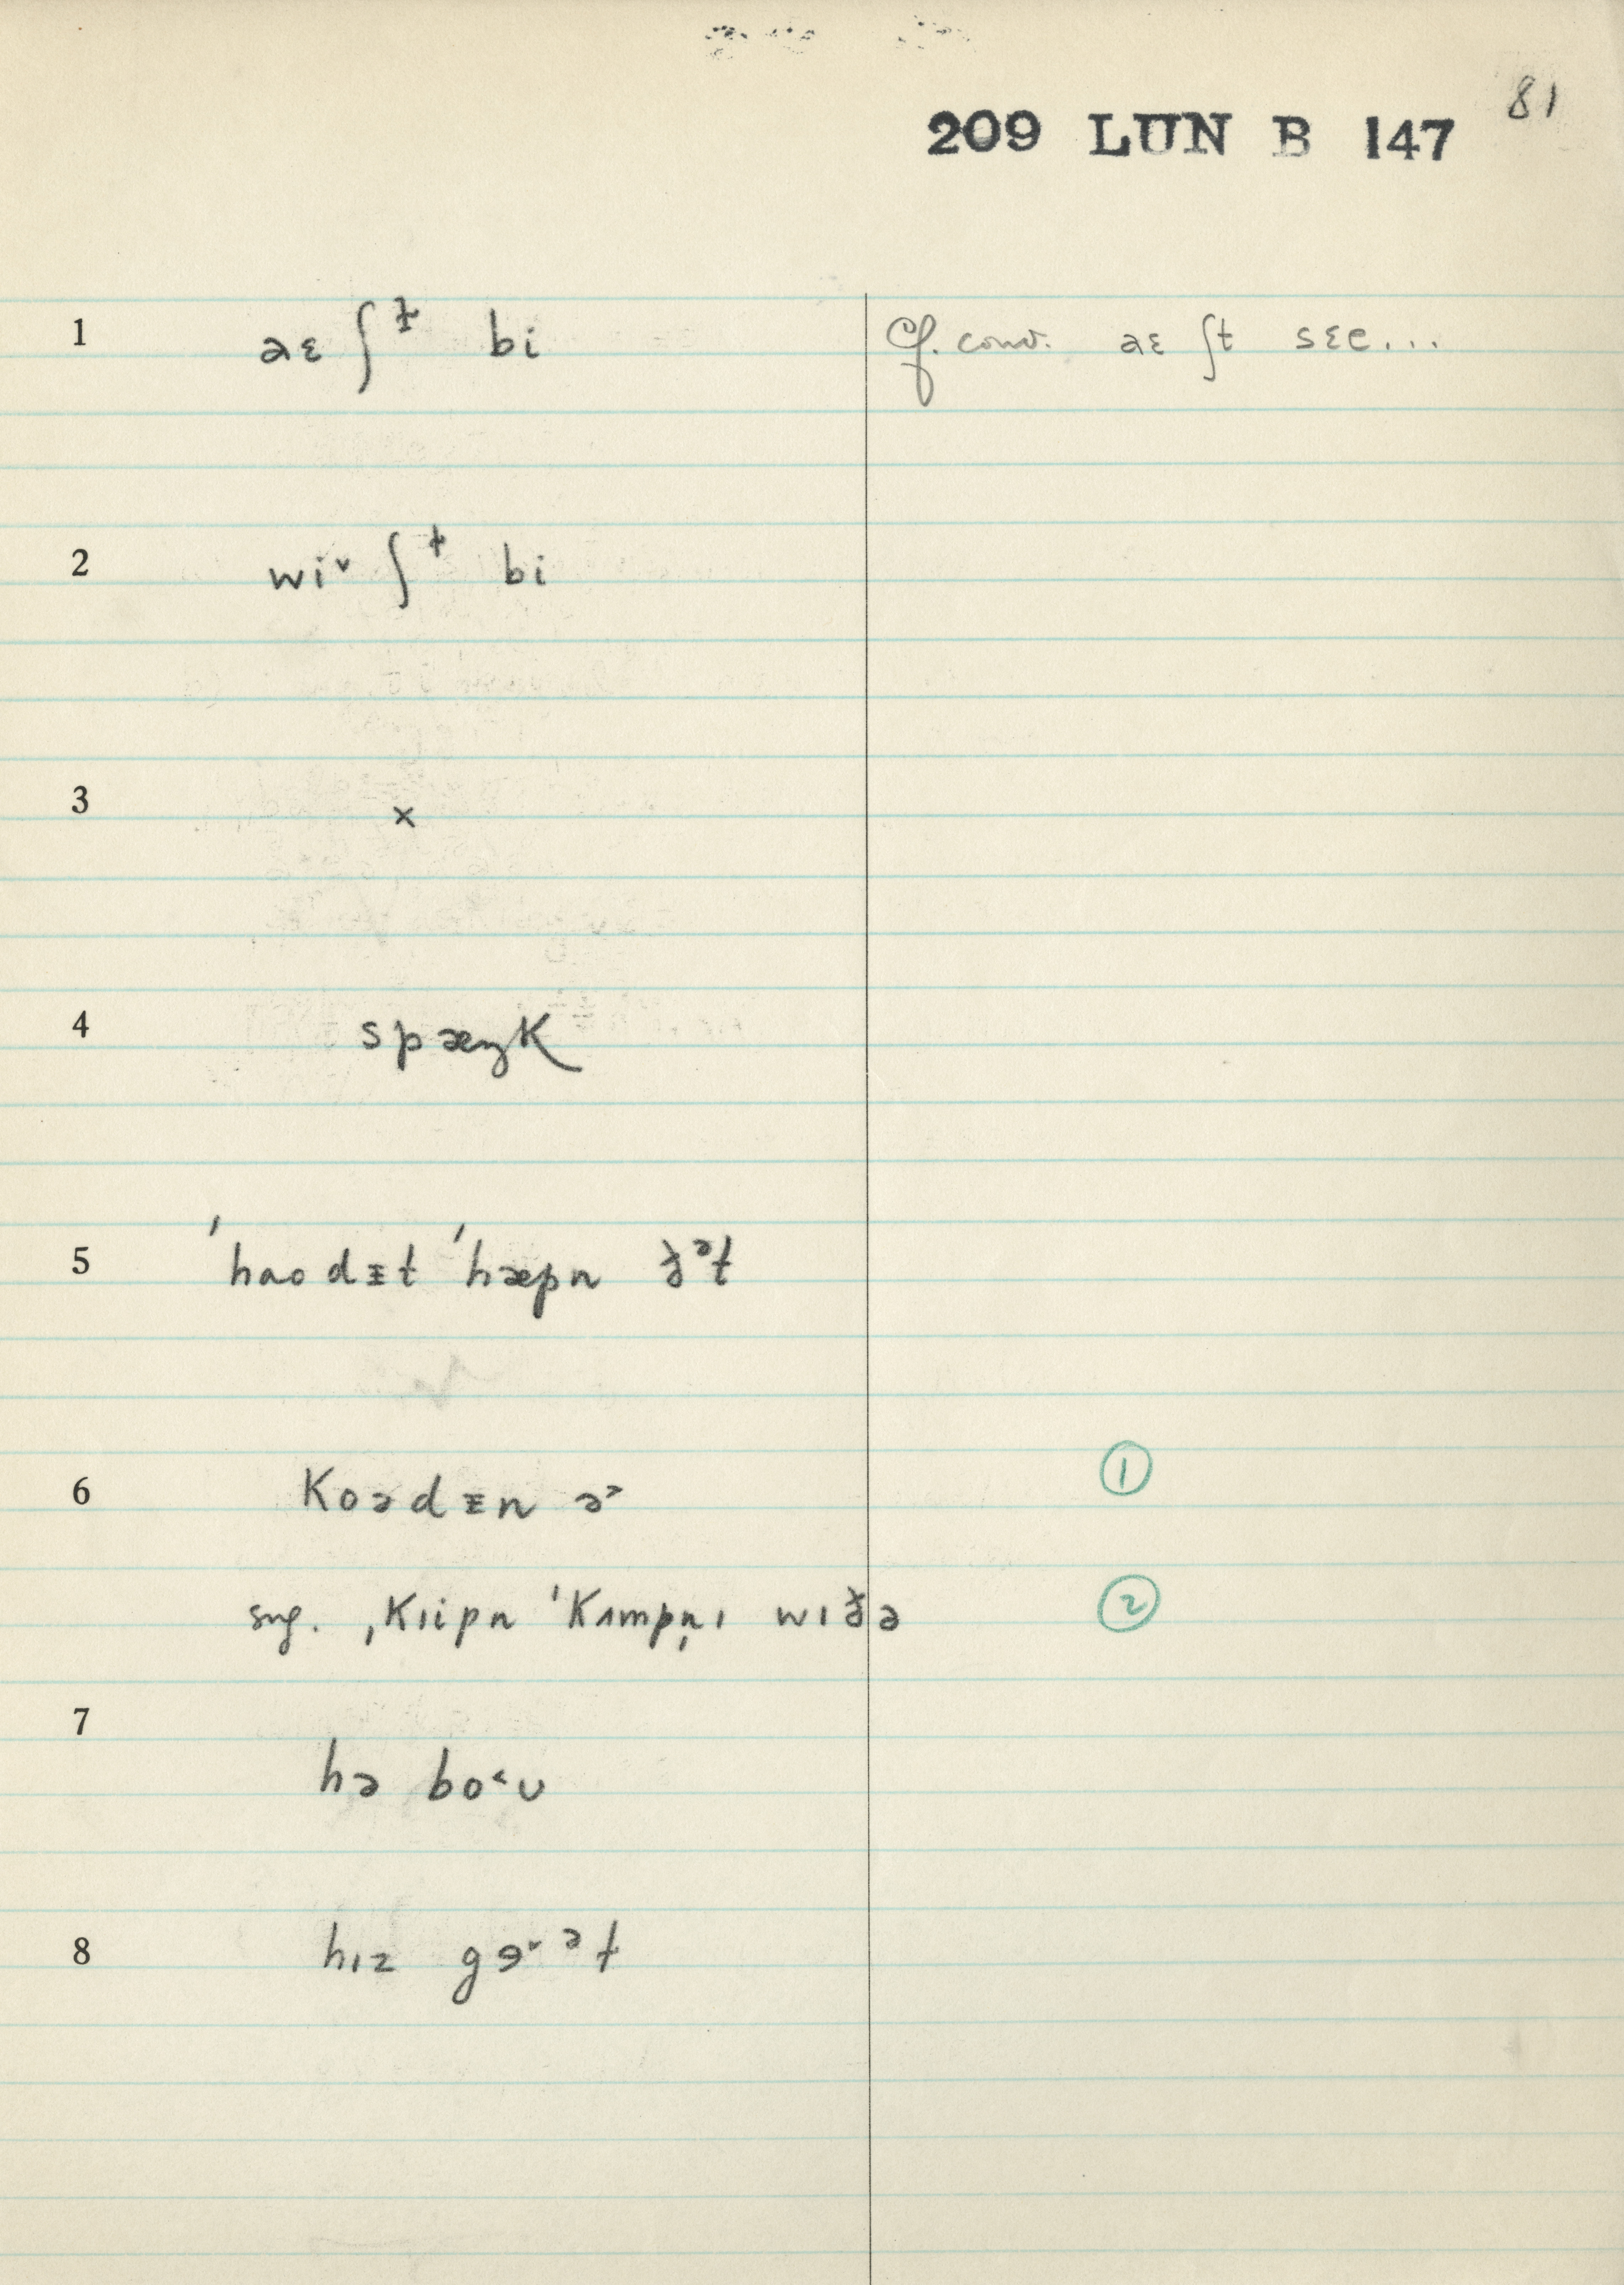 81
209 LUN B 147
1 aɛ ʃᵗ bi Cf. conv. aɛ ʃt sɛe...
2 wi˅ ʃᵗ bi
3 ×
4 spæŋk
5 ˈhaodᵻt ˈhæpn ðᵊt
6 Koədᵻn ə˃ ①
sug. ˌKɪipn ˈKʌmpn̩ɪ wɪðə ②
7 hə bo˂ʊ
8 hɪz gɘ˅ᵊt